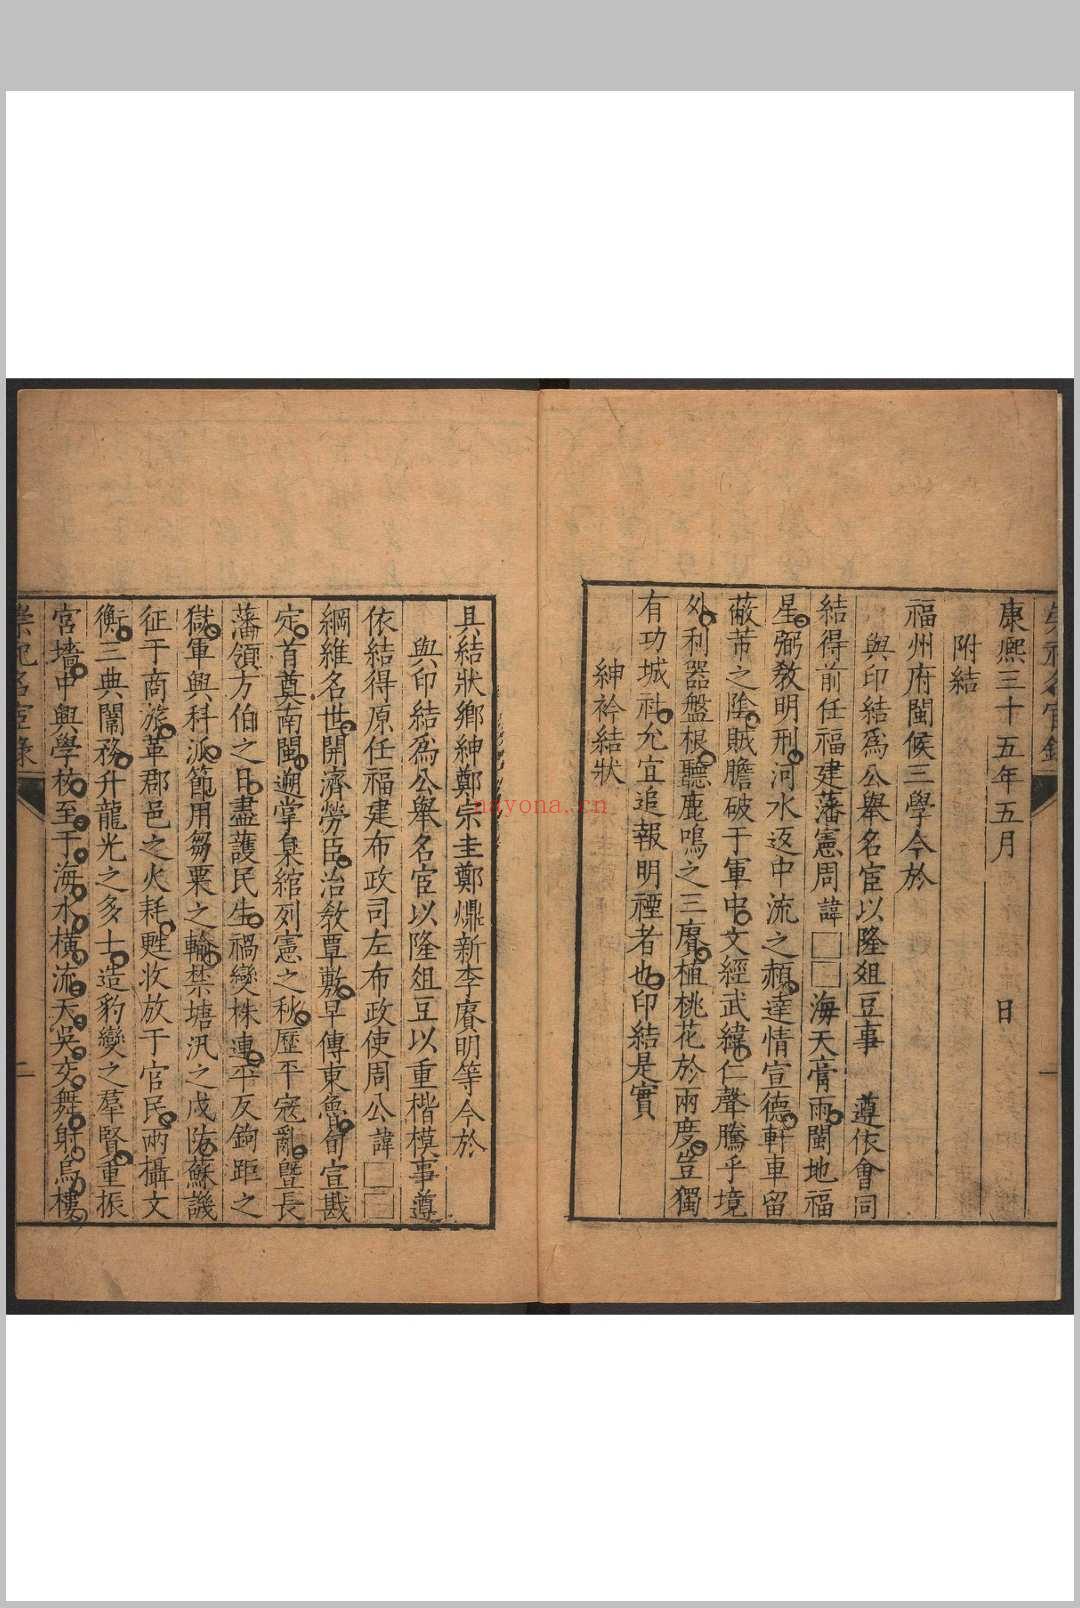 康熙三十五年五月 日
附結
福州府閩候三學今於
與印結爲公舉名宦以隆俎豆事 遵依會同
結得前任福建藩憲周諱□□海天膏雨閩地福
星弼教明刑河水返中流之頹達情宣德軒車留
蔽芾之陰賊膽破于軍中文經武緯仁聲騰乎境
外利器盤根聽鹿鳴之三賡植桃花於兩度豈獨
有功城社允宜追報明禋者也印結是實
紳衿結狀
一
具結狀鄉紳鄭宗圭鄭爌新李賡明等今於
與印結爲公舉名宦以隆俎豆以重楷模事遵
依結得原任福建布政司左布政使周公諱□□
綱維名世開濟勞臣治教覃敷早傳東魯旬宣戡
定首奠南閩遡掌臬綰列憲之秋歷平寇亂暨長
藩領方伯之日盡護民生禍變株連平反鉤距之
獄軍興科派節用芻粟之輸禁塘汛之戍防蘇譏
征于商旅革郡邑之火耗甦收放于官民兩攝文
衡三典闈務升龍光之多士造豹變之羣賢重振
宮墻中興學校至于海水橫流天吳交舞射烏樓
崇祀名宦錄
二
nayona.cn